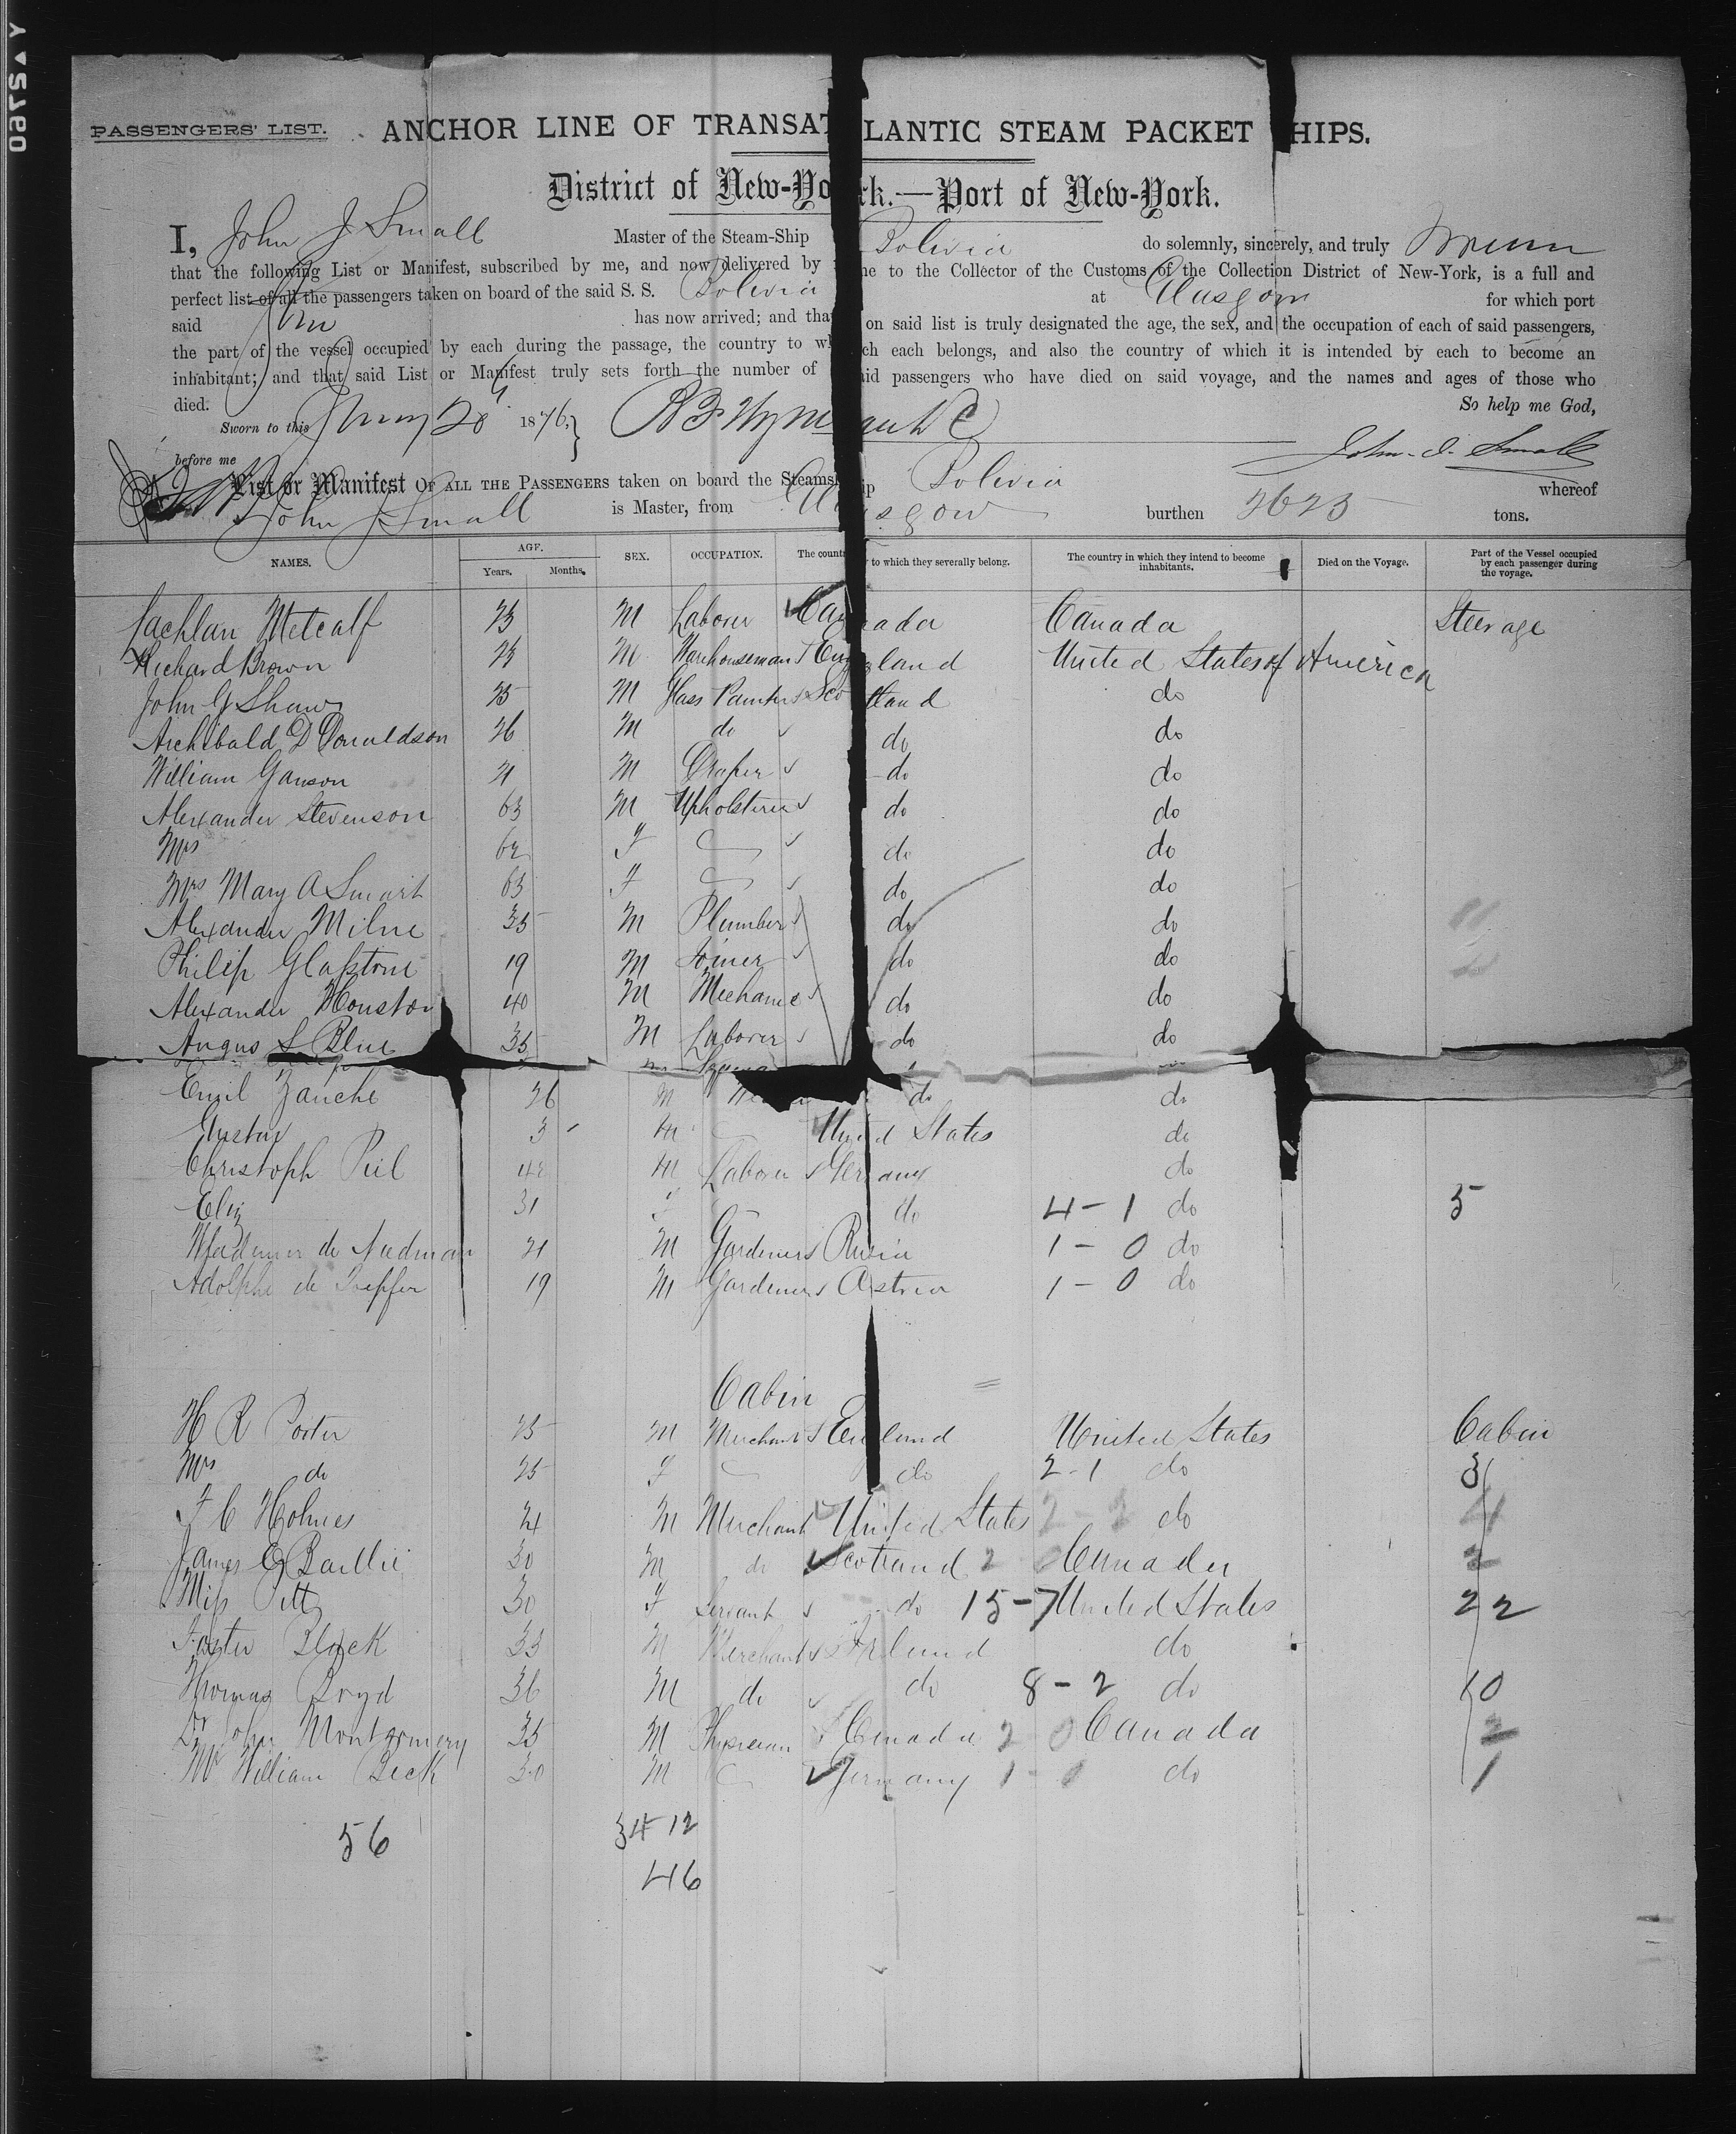 PASSENGERS' LIST. ANCHOR LINE OF TRANSATLANTIC STEAM PACKET SHIPS.
District of New-York.—Port of New-York.
I, John J Small Master of the Steam-Ship Bolivia do solemnly, sincerely, and truly
that the following List or Manifest, subscribed by me, and now delivered by me to the Collector of the Customs of the Collection District of New-York, is a full and
perfect list of all the passengers taken on board of the said S. S. Bolivia at Glasgow for which port
said has now arrived; and that on said list is truly designated the age, the sex, and the occupation of each of said passengers,
the part of the vessel occupied by each during the passage, the country to which each belongs, and also the country of which it is intended by each to become an
inhabitant; and that said List or Manifest truly sets forth the number of said passengers who have died on said voyage, and the names and ages of those who
died. So help me God,
Sworn to this 1876,
before me John J. Small
List or Manifest OF ALL THE PASSENGERS taken on board the Steamship Bolivia whereof
John J Small is Master, from Glasgow burthen 2623 tons.
NAMES. AGE. Years. Months. SEX. OCCUPATION. The country to which they severally belong. The country in which they intend to become inhabitants. Died on the Voyage. Part of the Vessel occupied by each passenger during the voyage.
Lachlan Metcalf 23 M Labour Canada Canada Steerage
Richard Brown 23 M Warehouseman England United States of America
John Shaw 25 M Glass Painter Scotland do
Archibald D Donaldson 26 M do do do
William 21 M Draper do do
Alexander Stevenson 63 M Upholsterer do do
Mrs 62 F do do
Mrs Mary A Smart 63 F do do
Alexander Milne 35 M Plumber do do
Philip Glasstone 19 M Joiner do do
Alexander Houston 40 M Mechanic do do
Angus Blue 35 M Laborer do do
Emil Zauche 26 M do do
Gustav 3 M United States do
Christoph Peil 42 M Labour Germany do
Eliz 31 F do 4-1 do 5
de 21 M Gardener Russia 1-0 do
Adolphe de 19 M Gardener Austria 1-0 do
Cabin
H R Porter 25 M Merchant England United States Cabin
Mrs do 25 F do 2-1 do 3
F C Holmes 24 M Merchant United States do 4
James Baillie 30 M do Scotland 2 Canada 2
Miss Pitt 30 F Servant do 15-7 United States 22
Foster Black 33 M Merchant Ireland do
Thomas Boyd 36 M do do 8-2 do 10
Dr John Montgomery 35 M Physician Canada 2 0 Canada 2
Mr William Beck 30 M Germany 1 do 1
56 34 12
46